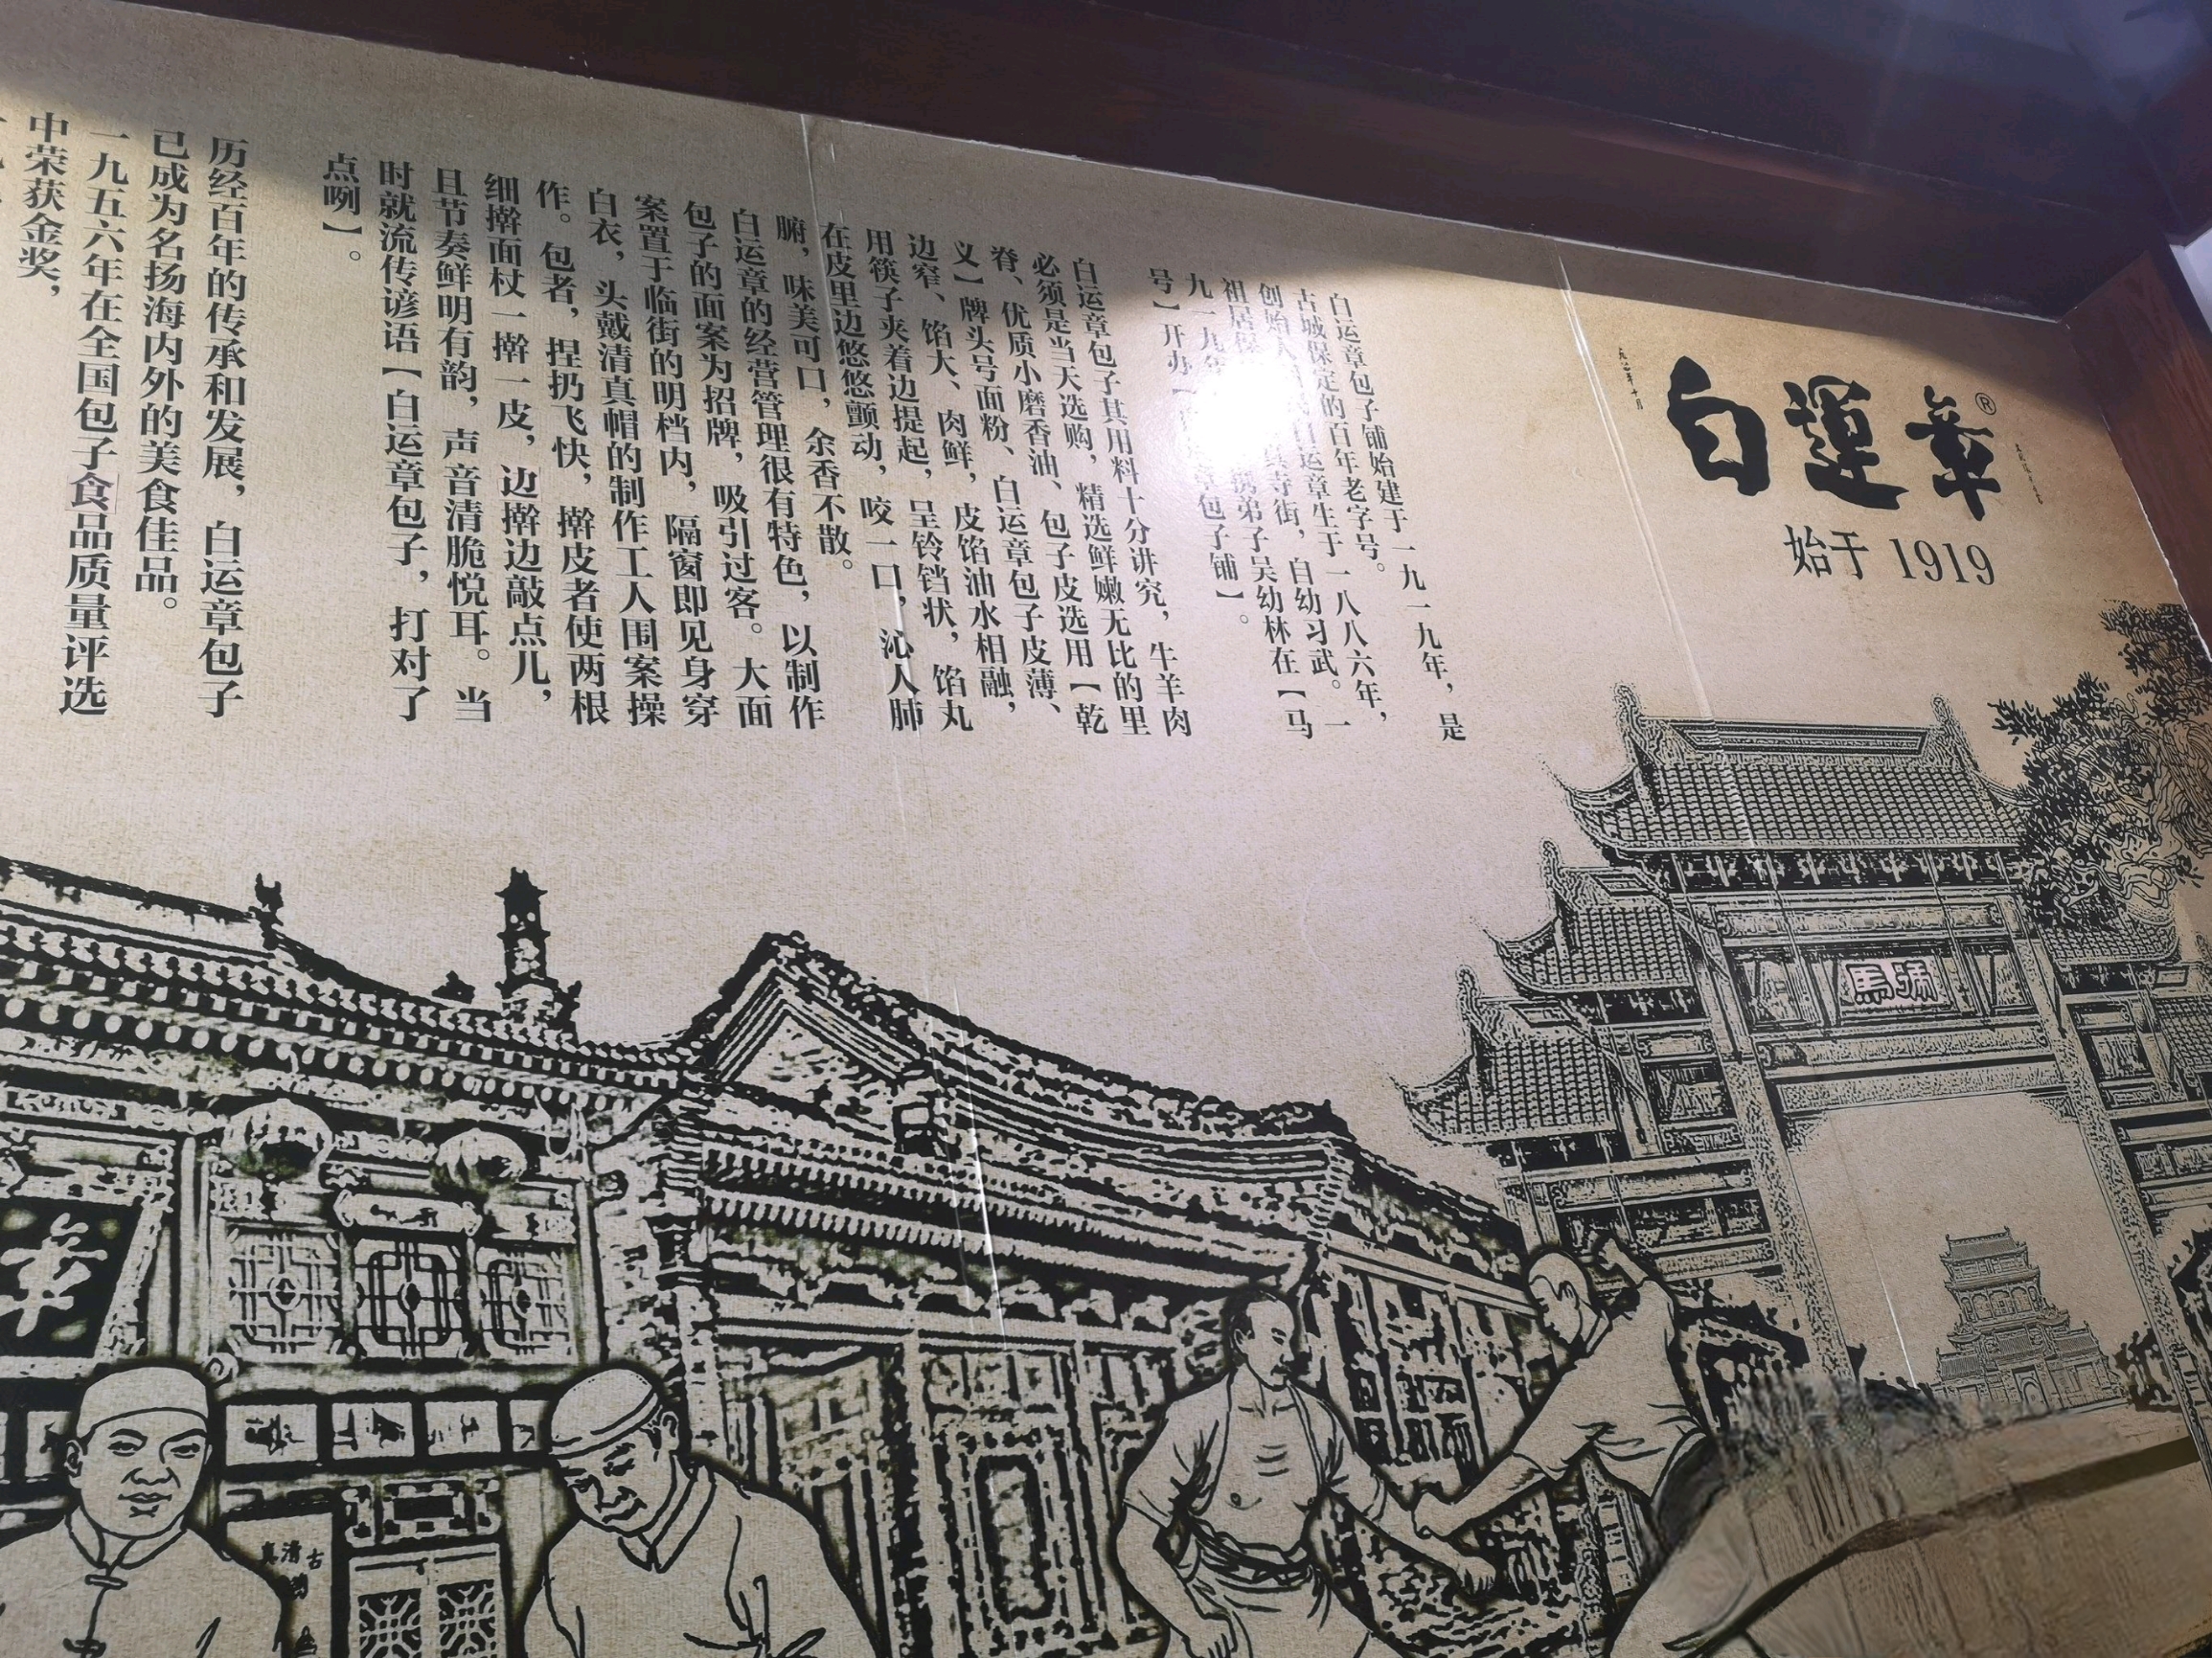 白運章®
始于 1919
白运章包子铺始建于一九一九年，是
古城保定的百年老字号。
创始人白运章生于一八八六年，
祖居保寺街，自幼习武。一
九一九年携弟子吴幼林在【马
号】开办【章包子铺】。
白运章包子其用料十分讲究，牛羊肉
必须是当天选购，精选鲜嫩无比的里
脊、优质小磨香油、包子皮选用【乾
义】牌头号面粉、白运章包子皮薄、
边窄、馅大、肉鲜，皮馅油水相融，
用筷子夹着边提起，呈铃铛状，馅丸
在皮里边悠悠颤动，咬一口，沁人肺
腑，味美可口，余香不散。
白运章的经营管理很有特色，以制作
包子的面案为招牌，吸引过客。大面
案置于临街的明档内，隔窗即见身穿
白衣，头戴清真帽的制作工人围案操
作。包者，捏扔飞快，擀皮者使两根
细擀面杖一擀一皮，边擀边敲点儿，
且节奏鲜明有韵，声音清脆悦耳。当
时就流传谚语【白运章包子，打对了
点咧】。
历经百年的传承和发展，白运章包子
已成为名扬海内外的美食佳品。
一九五六年在全国包子食品质量评选
中荣获金奖，
馬號
章
清真
古